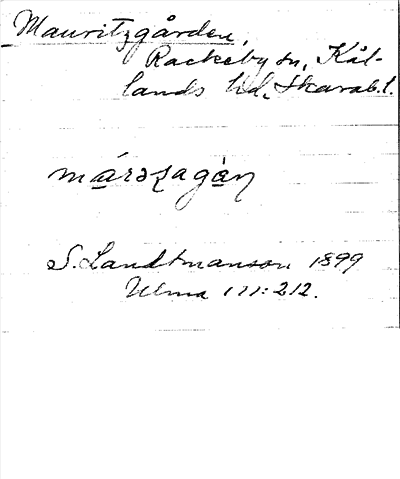 Mauritzgården,
Rackeby sn, Kål-
lands hd, Skarab.l.
S. Landtmanson 1899
Ulma 111:212.